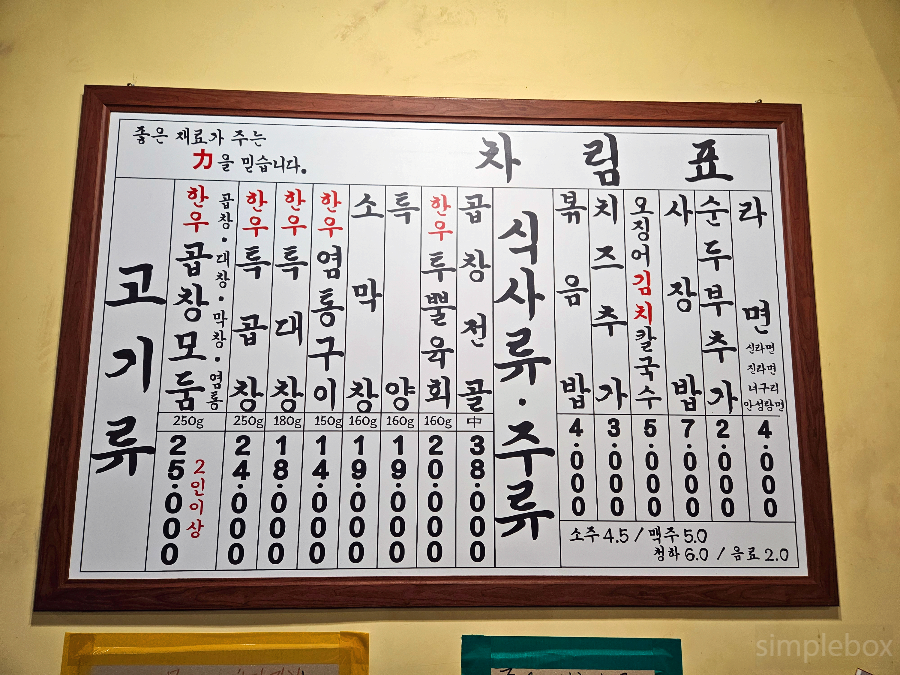 좋은 재료가 주는
力을 믿습니다.
차림표
고기류
한우곱창모둠
곱창·대창·막창·염통
250g
25.000
2인이상
한우특곱창
250g
24.000
한우특대창
180g
18.000
한우염통구이
150g
14.000
소막창
160g
19.000
특양
160g
19.000
한우투뿔육회
160g
20.000
곱창전골
中
38.000
식사류·주류
볶음밥
4.000
치즈추가
3.000
오징어김치칼국수
5.000
사장밥
7.000
순두부추가
2.000
라면
신라면
진라면
너구리
안성탕면
4.000
소주 4.5 / 맥주 5.0
청하 6.0 / 음료 2.0
simplebox